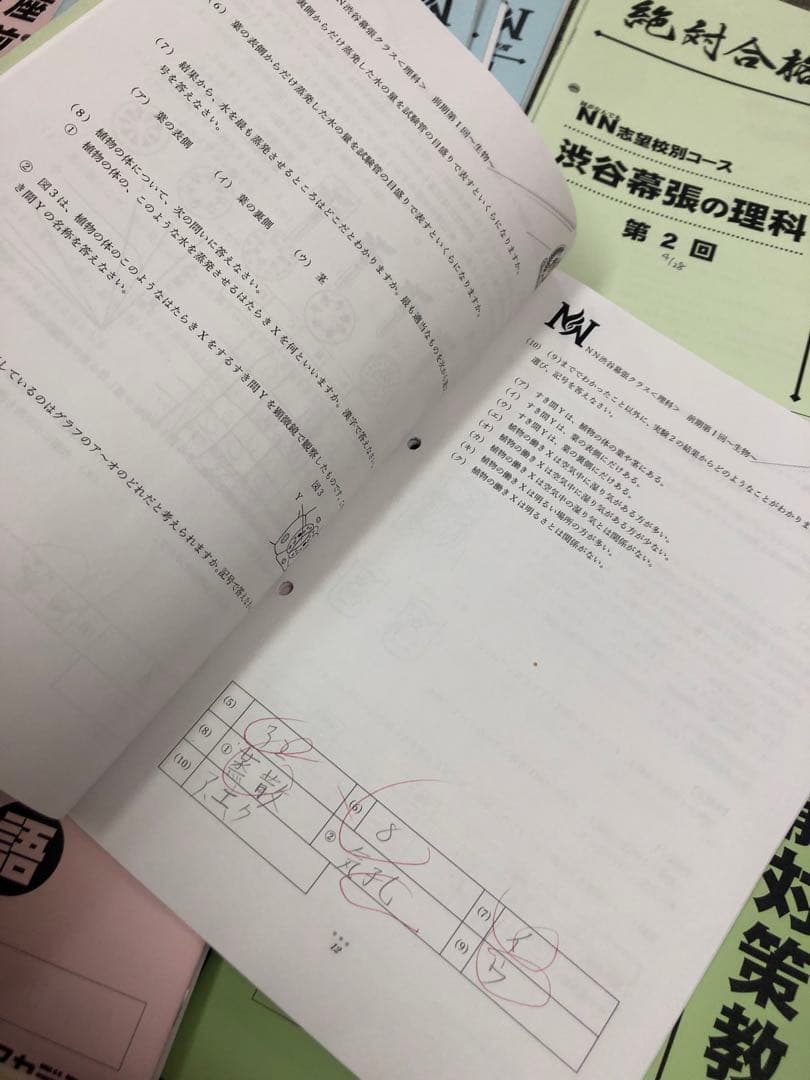 NN渋谷幕張クラス<理科> 前期第1回~生物~
裏側からだけ蒸発した水の量を試験管の目盛りで表すといくらになりますか。
(6) 葉の表側からだけ蒸発した水の量を試験管の目盛りで表すといくらになりますか。
(7) 結果から、水を最も蒸発させるところはどこだとわかりますか。最も適当なものを次から選び
号を答えなさい。
(ア) 葉の表側
(イ) 葉の裏側
(ウ) 茎
(8) 植物の体について、次の問いに答えなさい。
① 植物の体の、このような水を蒸発させるはたらきXを何といいますか。漢字で答えなさい
② 図3は、植物の体のこのようなはたらきXをするすき間Yを顕微鏡で観察したものです。
き間Yの名称を答えなさい。
図3
Y
しているのはグラフのア~オのどれだと考えられますか。記号で答えなさい
NN渋谷幕張クラス<理科> 前期第1回~生物~
(10) (9)まででわかったこと以外に、実験2の結果からどのようなことがわかりま
選び、記号を答えなさい。
(ア) すき間Yは、植物の体の葉や茎にある。
(イ) すき間Yは、葉の表側にだけある。
(ウ) すき間Yは、葉の裏側にだけある。
(エ) 植物の働きXは空気中に湿り気がある方が多い。
(オ) 植物の働きXは空気中に湿り気がある方が少ない。
(カ) 植物の働きXは空気中の湿り気とは関係がない。
(キ) 植物の働きXは明るい場所の方が多い。
(ク) 植物の働きXは明るさとは関係がない。
(5) 32
(6) 8
(7) イ
(8) ① 蒸散
② 気孔
(9) ウ
(10) ア、エ、ク
12
絶対合格
NN志望校別コース
渋谷幕張の理科
第2回
4/28
対策教
座
前
語